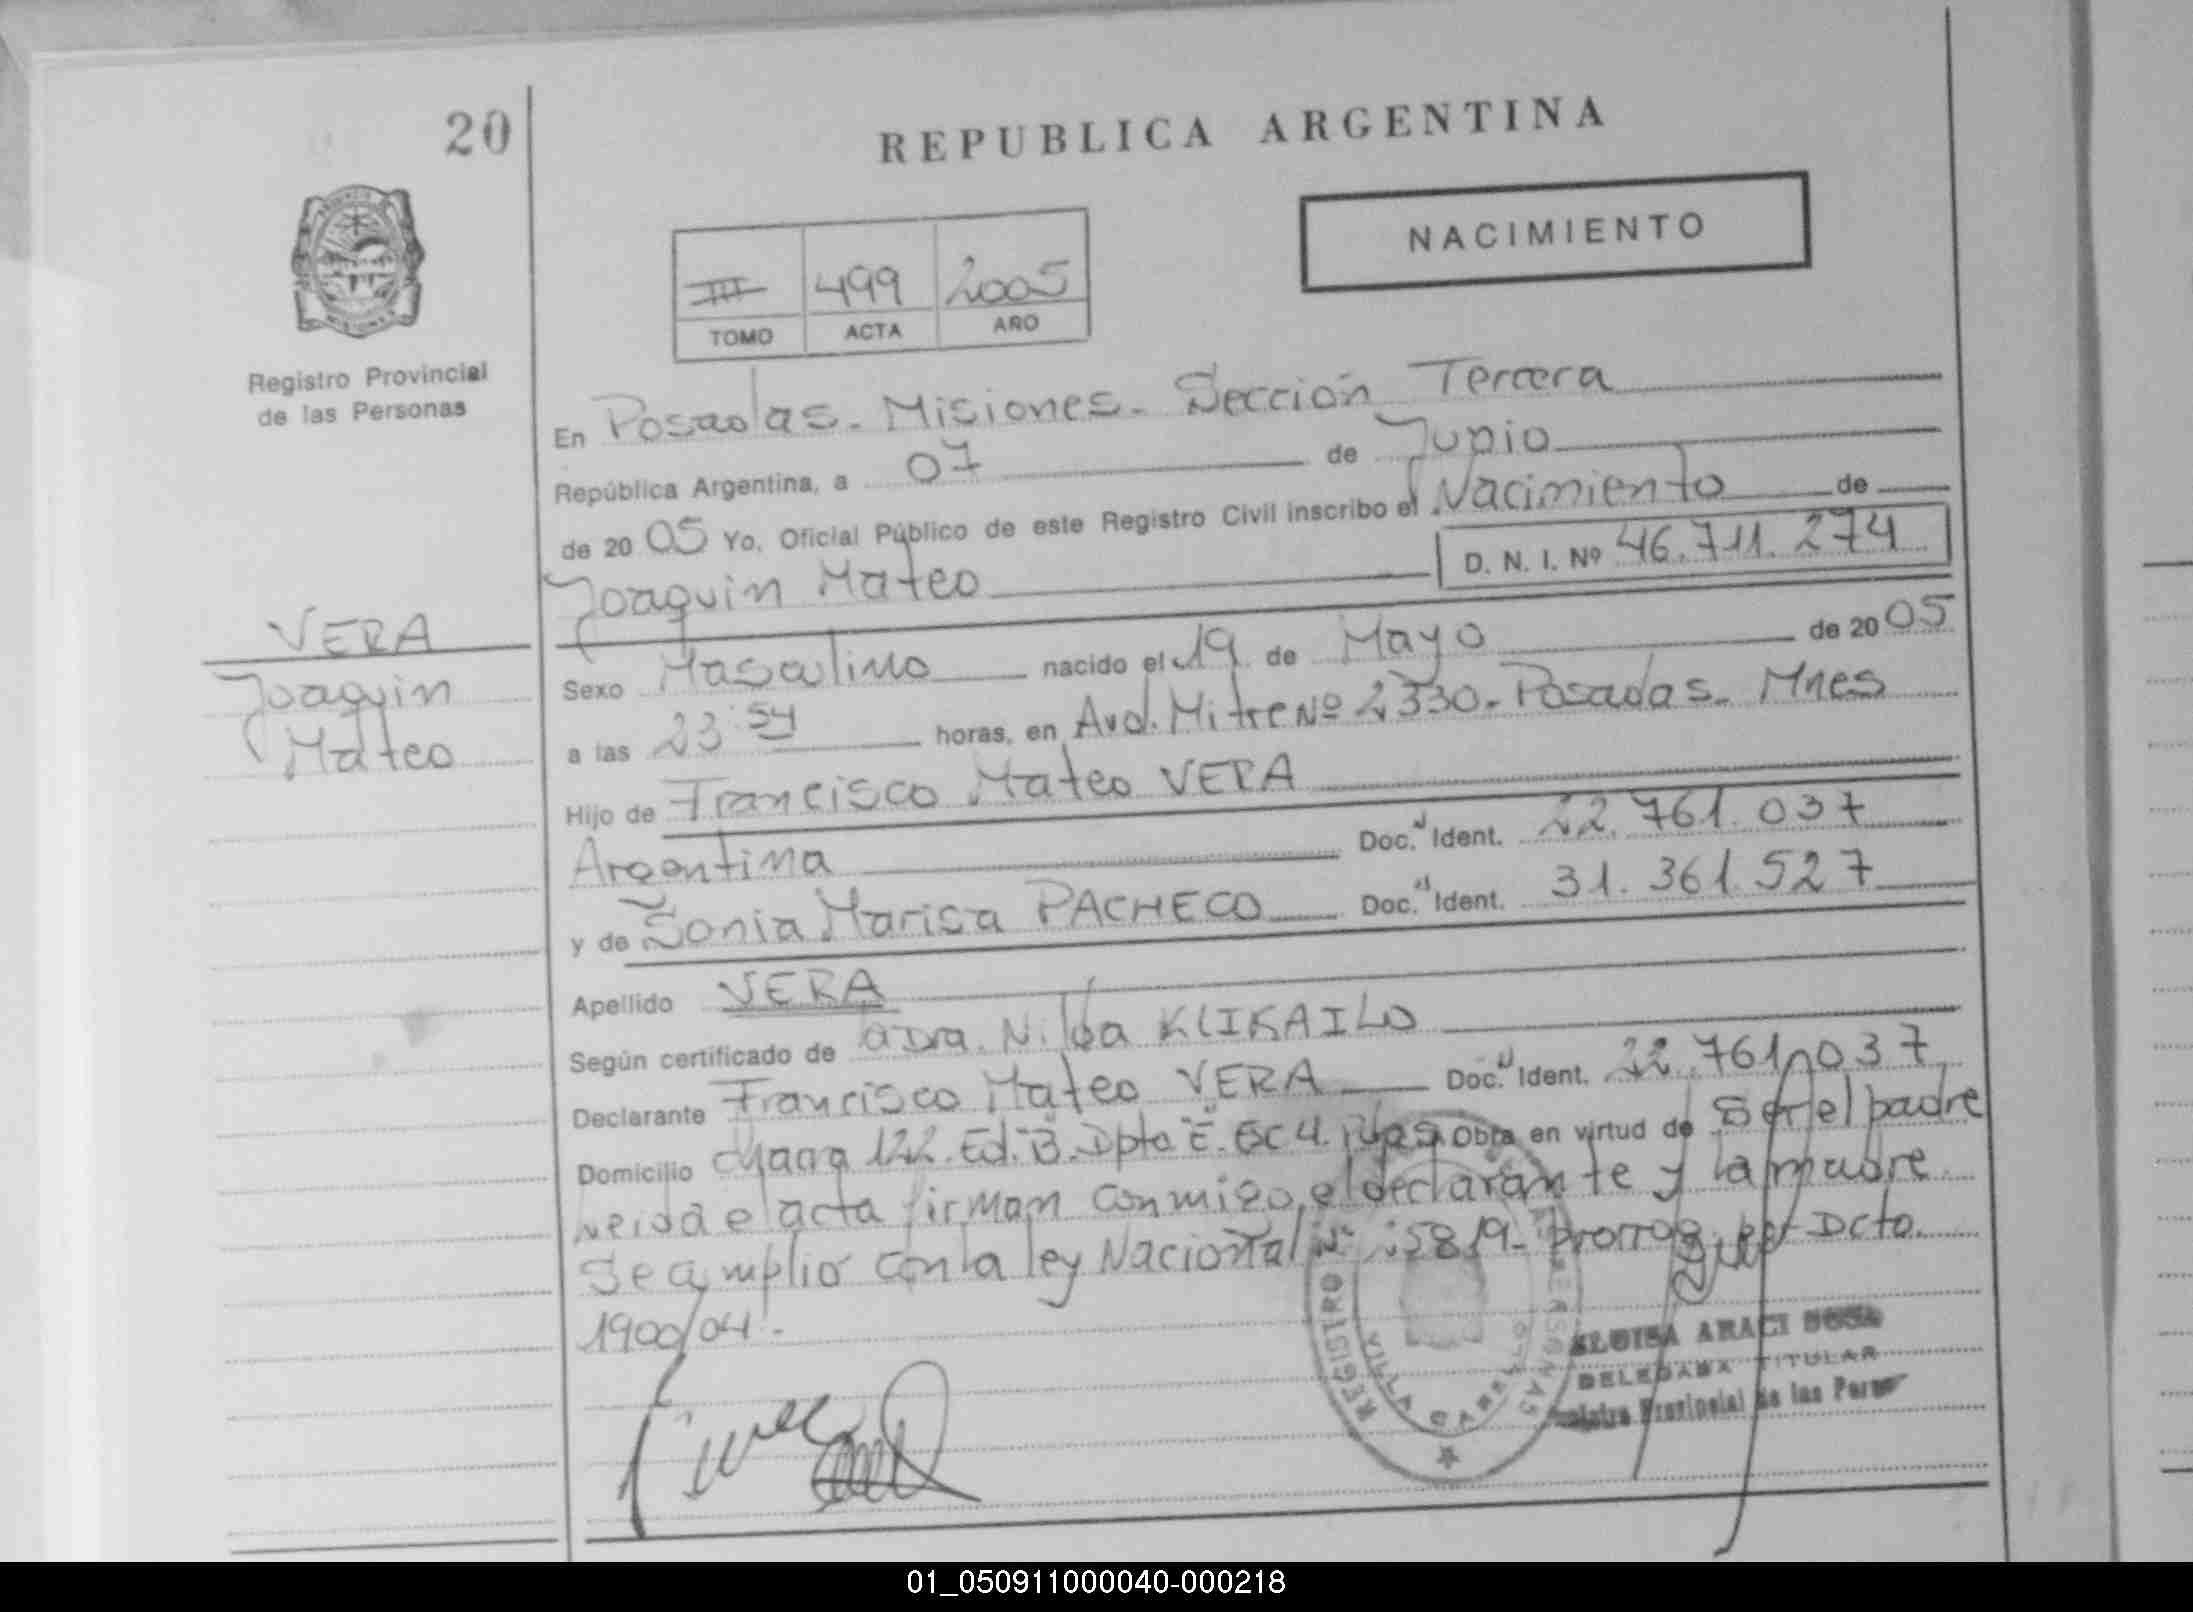 20
REPUBLICA ARGENTINA
NACIMIENTO
III 499 2005
TOMO ACTA AÑO
Registro Provincial
de las Personas
En Posadas - Misiones - Sección Tercera
República Argentina, a 07 de Junio
de 2005 Yo, Oficial Público de este Registro Civil inscribo el Nacimiento de
Joaquin Mateo D. N. I. Nº 46.711.274
VERA
Joaquin
Mateo
Sexo Masculino nacido el 19 de Mayo de 2005
a las 23:54 horas, en Avd. Mitre Nº 2330 - Posadas - Mnes
Hijo de Francisco Mateo VERA
Argentina Doc. Ident. 22.761.037
y de Sonia Marisa PACHECO Doc. Ident. 31.361.527
Apellido VERA
Según certificado de Dra. Nilda KLIKAILO
Declarante Francisco Mateo VERA Doc. Ident. 22.761.037
Domicilio 122. Ed. B. Dpto E. Obra en virtud de Ser el padre
el acta firman conmigo el declarante y la madre
Se amplió con la ley Nacional Nº 25819 - prorrog. por Dcto.
1900/04.
REGISTRO
VILLA CABELLO
ELOISA ARACI SOSA
DELEGADA TITULAR
Registro Provincial de las Pers
01_050911000040-000218